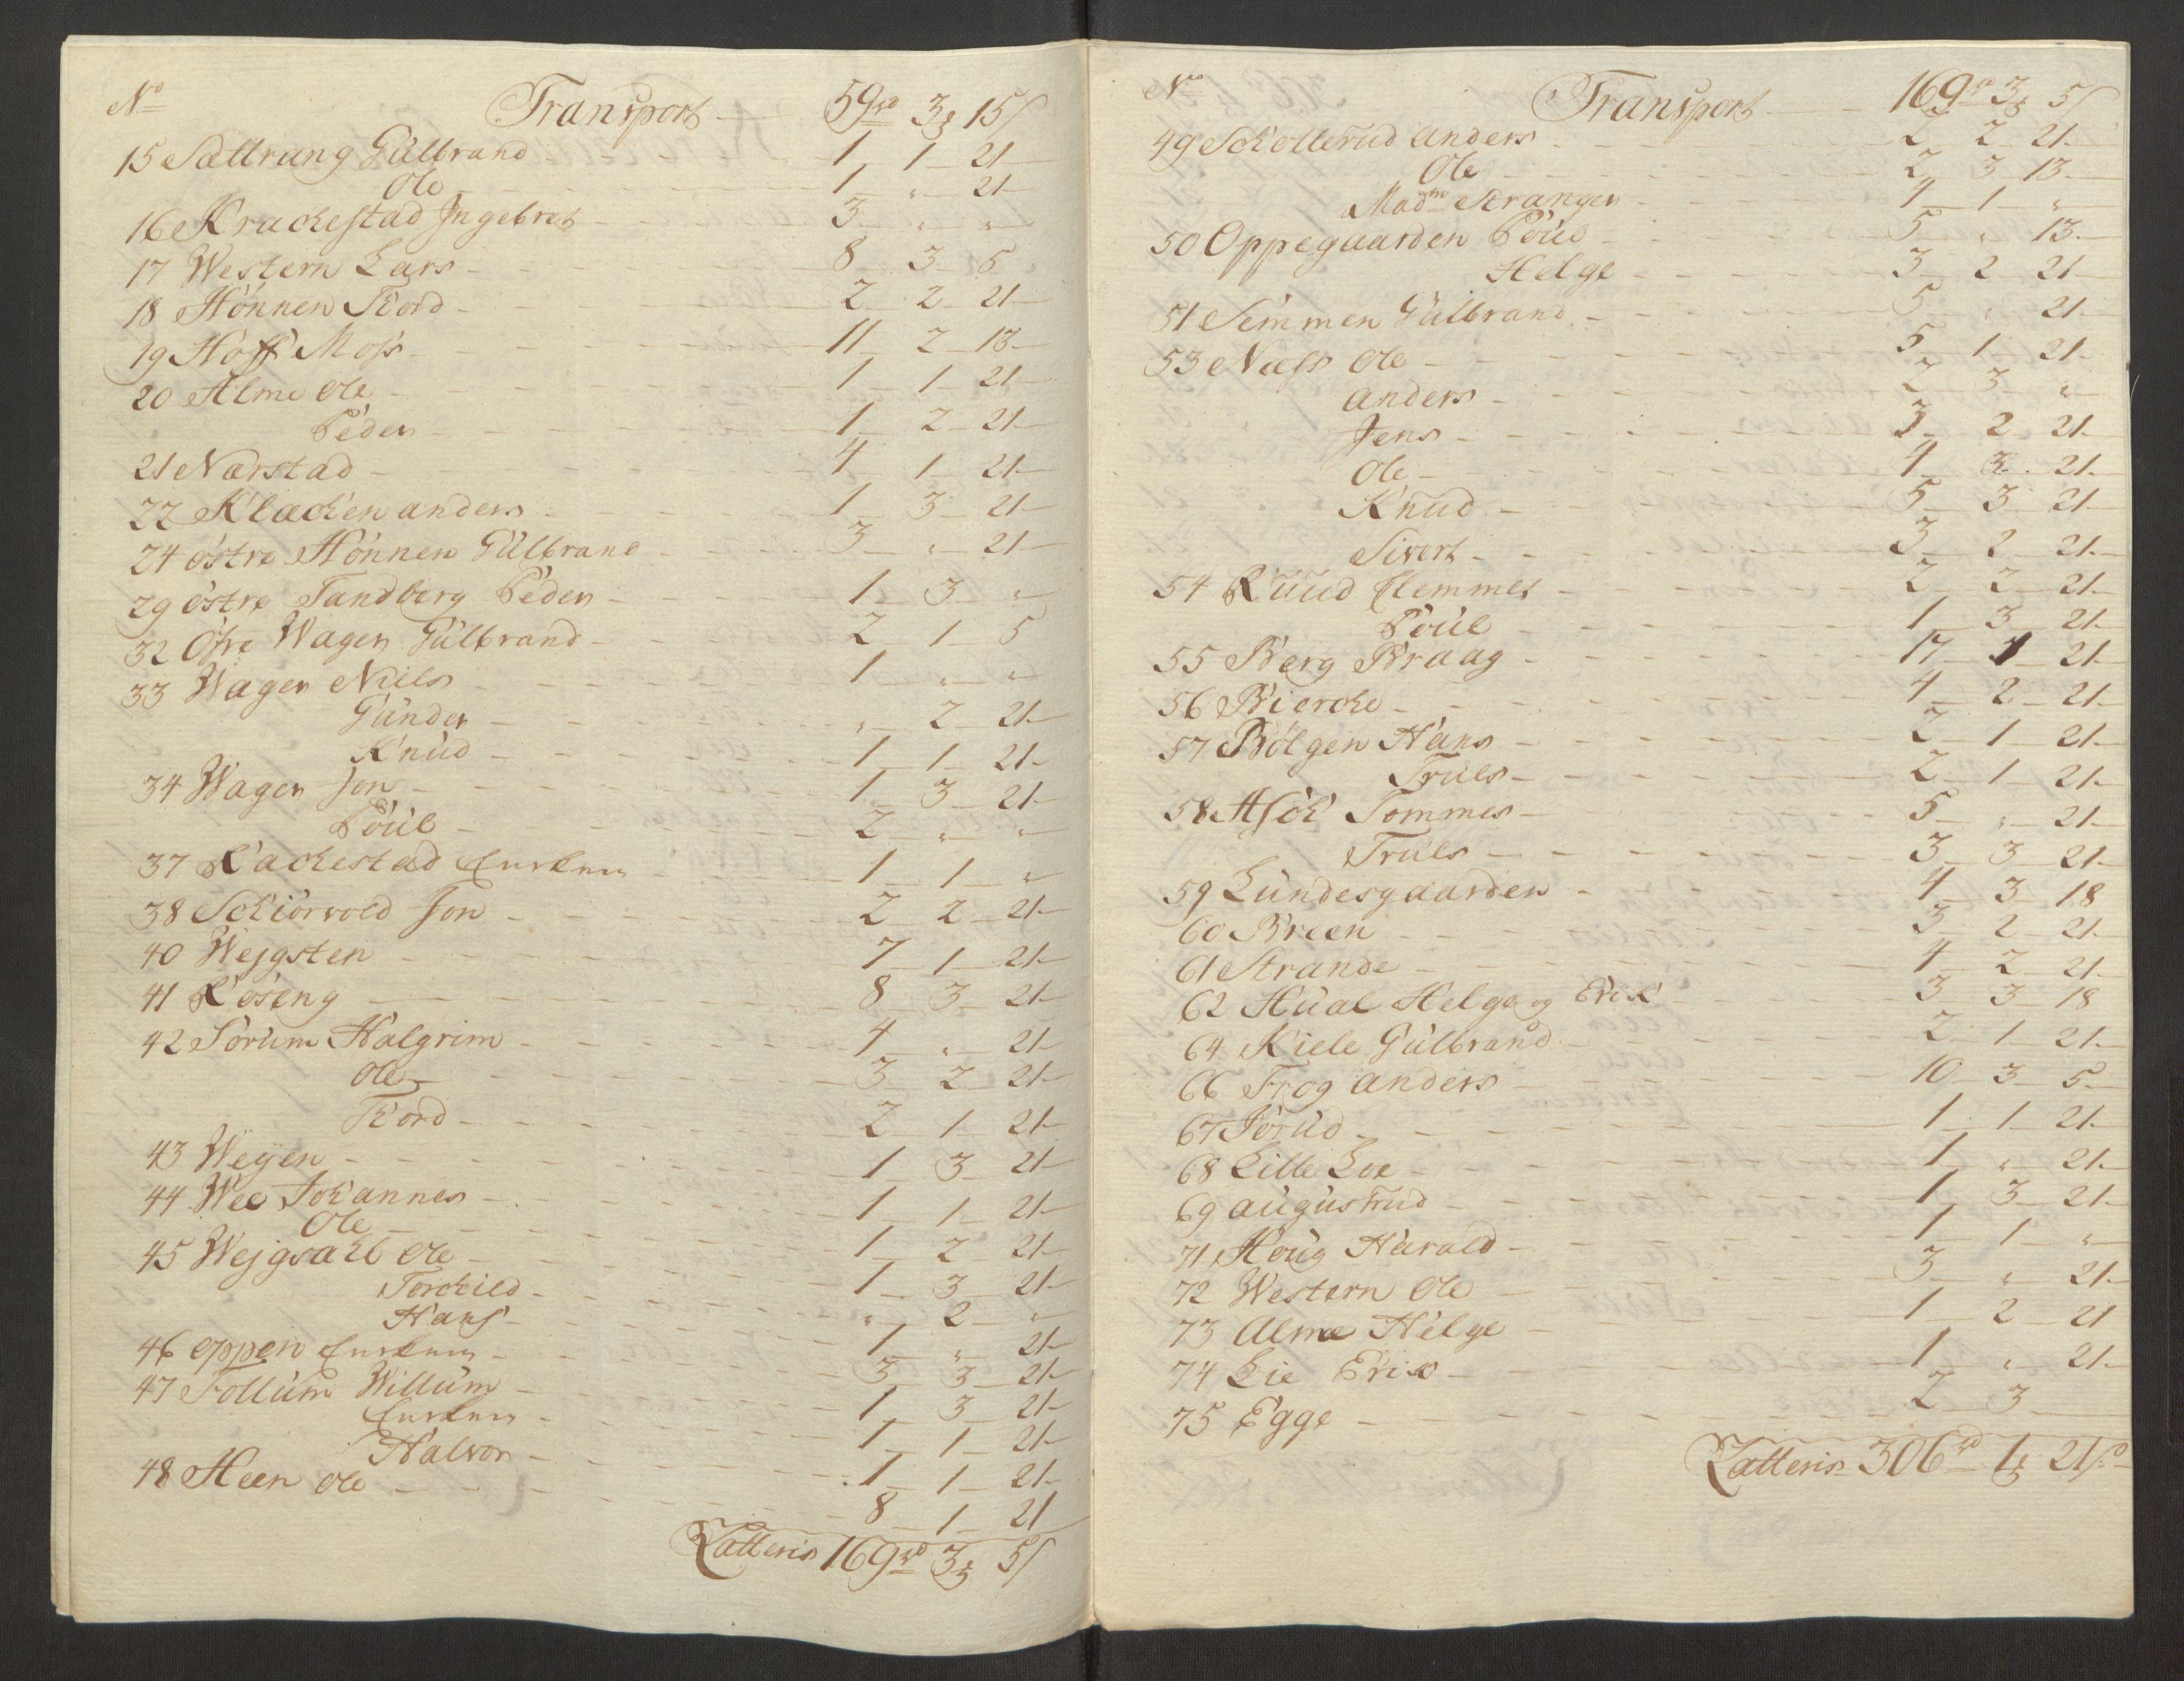 No Transport 59 rd 3 15 s
15 Sættrang Gülbrand 1 1 21
Ole 1 " 21
16 Krackestad Ingebret 3 " "
17 Western Lars 8 3 5
18 Hönnen Tord 2 2 21
19 Hoff Mojs 11 2 13
20 Alme Ole 1 1 21
Peder 1 2 21
21 Nærstad 4 1 21
22 Klæcken anders 1 3 21
24 östre Hönnen Gülbrand 3 " 21
29 östre Tandberg Peder 1 3 "
32 Öfre Wager Gülbrand 2 1 5
33 Wager Niels 1 " "
Gunder " 2 21
Knud 1 1 21
34 Wager Jon 1 3 21
Poül 2 " "
37 Rackestad 1 1 "
38 Schiörvold Jon 2 2 21
40 Wejgsten 7 1 21
41 Röseng 8 3 21
42 Sørum Halgrim 4 " 21
Ole 3 2 21
Tord 2 1 21
43 Weyen 1 3 21
44 Wee Johannes 1 1 21
Ole 1 2 21
45 Wejgsahl Ole 1 3 21
Torckild " 2 "
Hans 1 " 21
46 oppen 3 3 21
47 Follum Willum 1 3 21
1 1 21
Halvor 1 1 21
48 Heen Ole 8 1 21
Latteris 169 rd 3 5 s
No Transport 169 rd 3 5 s
49 Schollerud Anders 2 2 21
Ole 2 3 13
Madm Stranger 4 1 "
50 Oppegaarden Poül 5 " 13
Helge 3 2 21
51 Semmen Gülbrand 5 " 21
53 Næss Ole 5 1 21
Anders 2 3 "
Jens 3 2 21
Ole 4 3 21
Knud 5 3 21
Sivert 3 2 21
54 Ruud Clemmet 2 2 21
Poül 1 3 21
55 Berg Braag 17 1 21
56 Biercke 4 2 21
57 Bölgen Hans 2 1 21
Truls 2 1 21
58 Ask Tommes 5 " 21
Truls 3 3 21
59 Lundesgaarden 4 3 18
60 Breen 3 2 21
61 Strande 4 2 21
62 Hual Helge og Erik 3 3 18
64 Kiele Gülbrand 2 1 21
66 Frog Anders 10 3 5
67 Jörud 1 1 21
68 Lille Loe 1 " 21
69 augustrud 1 3 21
71 Houg Harald 1 1 "
72 Western Ole 3 " 21
73 Alme Helge 1 2 21
74 Lie Erik 1 " 21
75 Egge 2 3
Latteris 306 rd 1 21 s